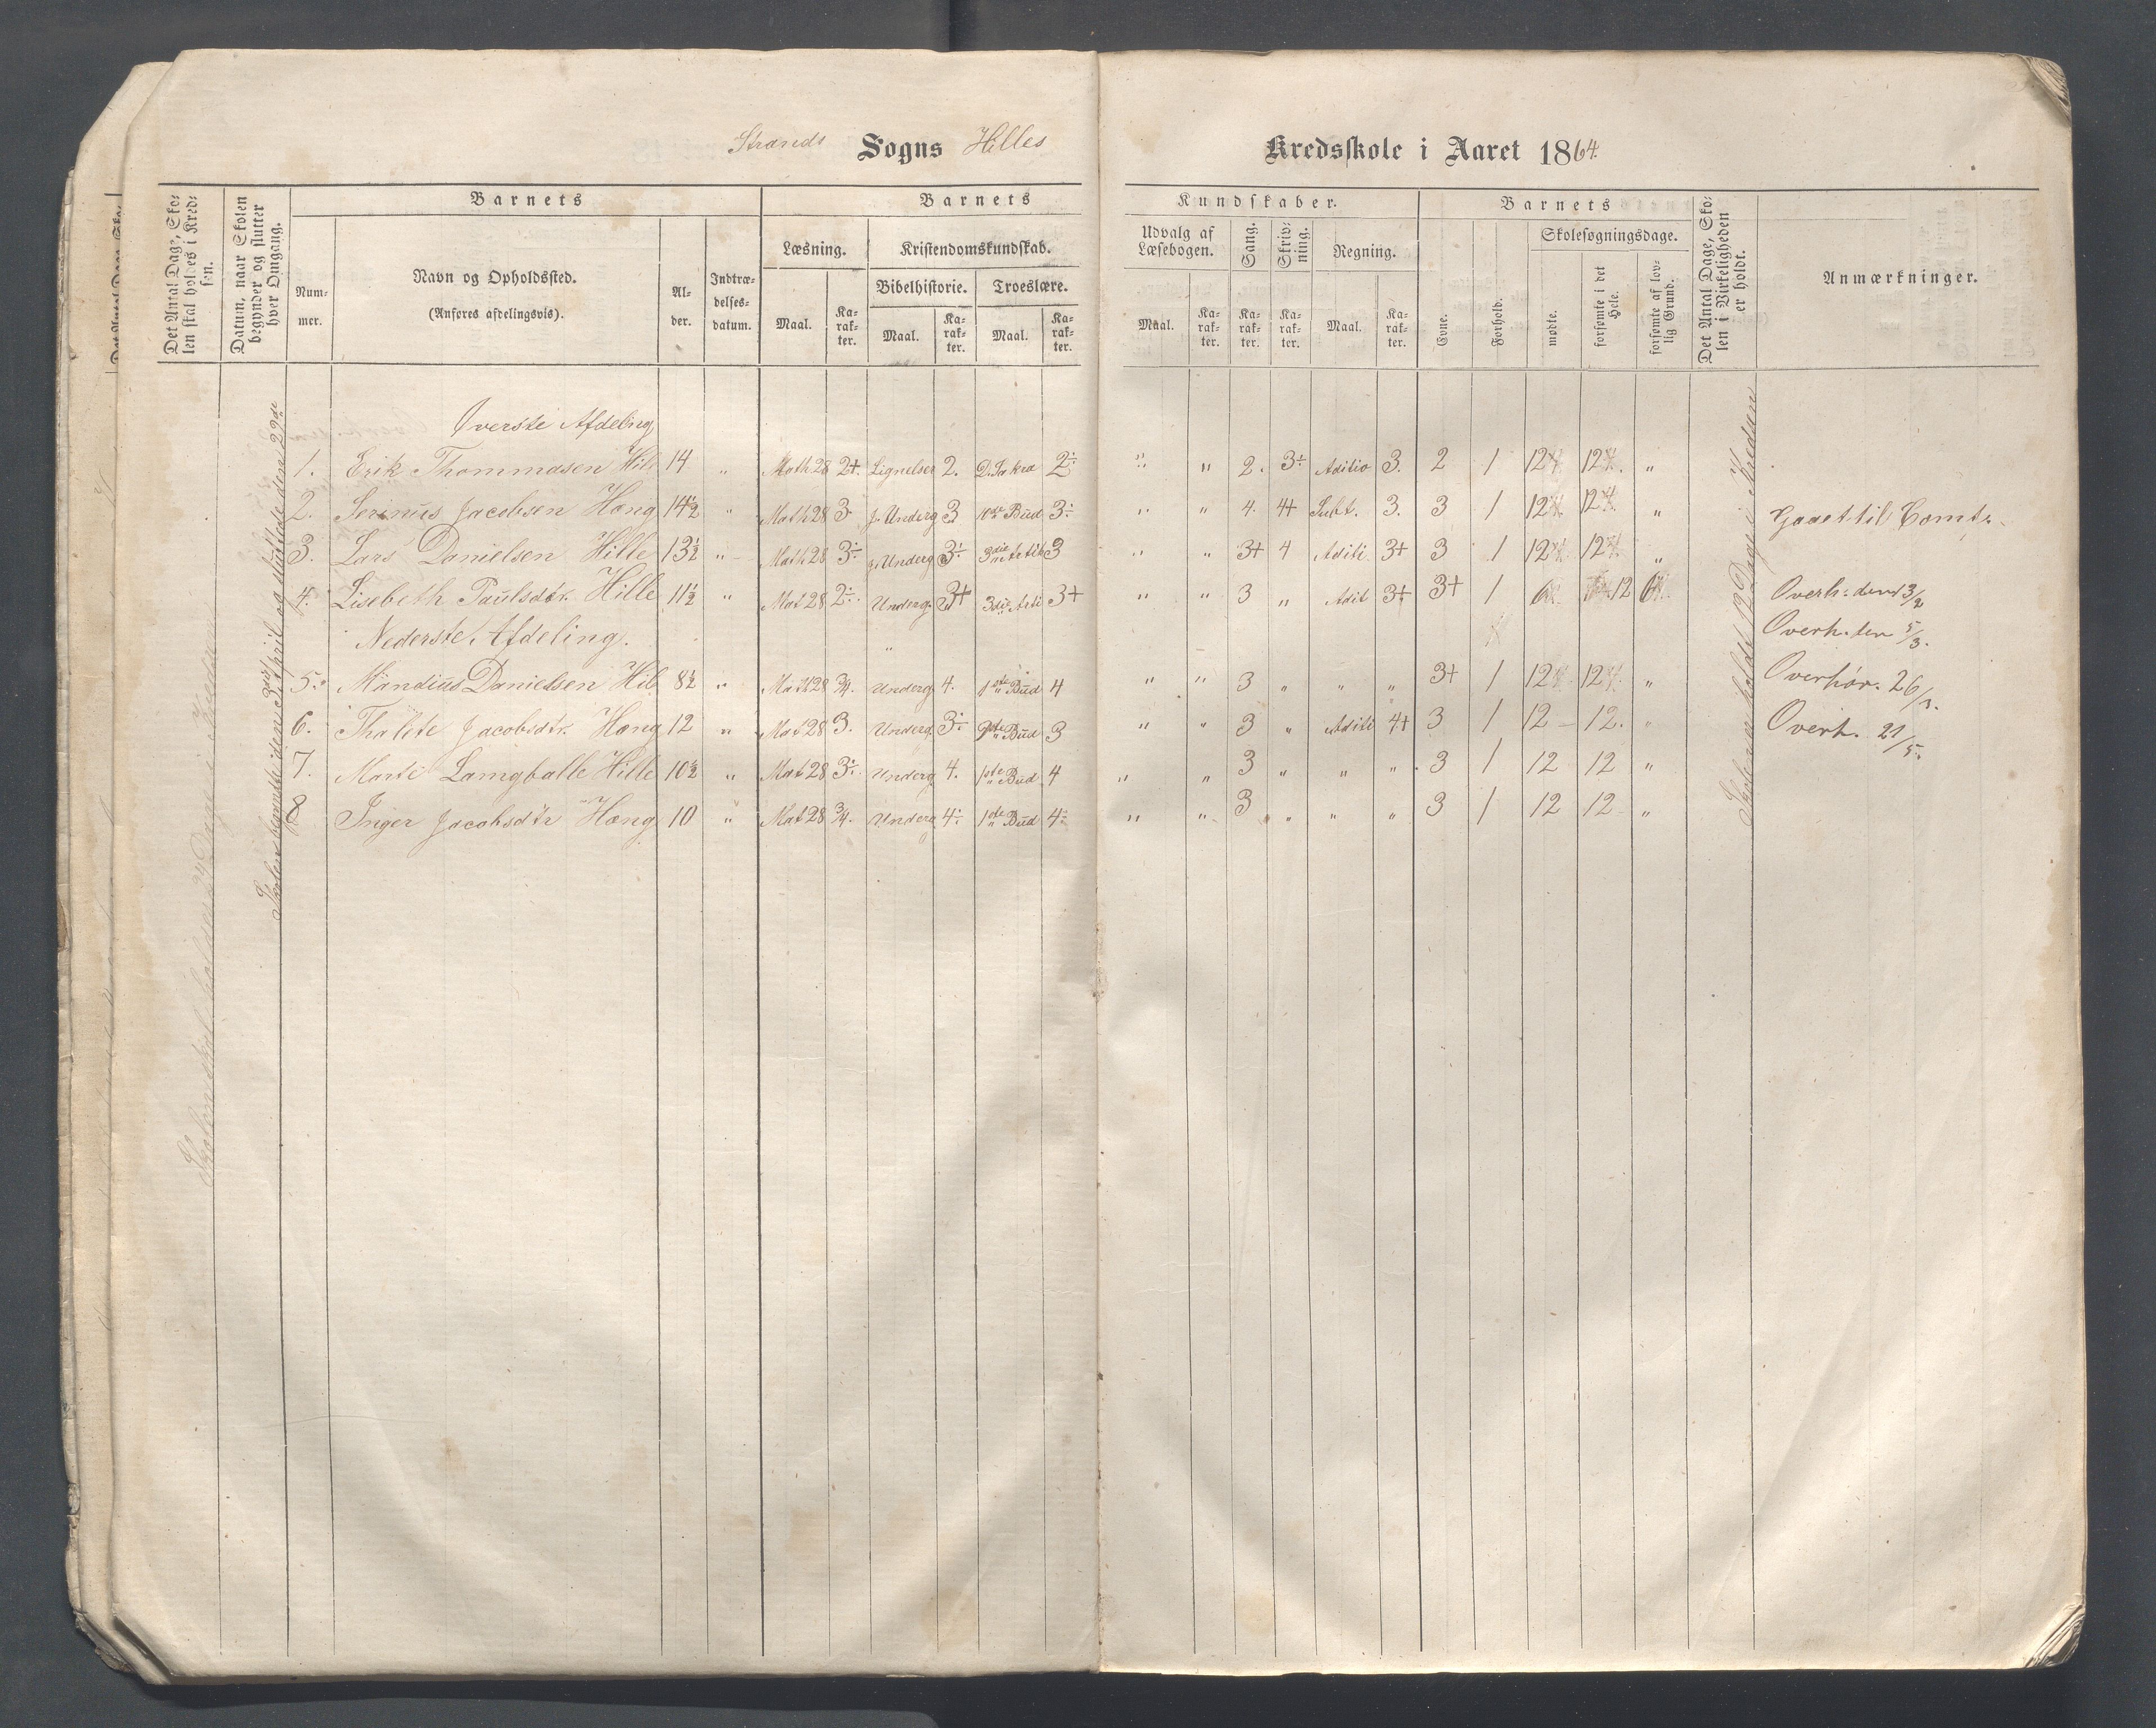 Strands Sogns Hilles Kredsskole i Aaret 1864.
Det Antal Dage, Skolen skal holdes i Kredsen.
Datum, naar Skolen begynder og slutter hver Omgang.
Barnets
Nummer.
Navn og Opholdssted.
(Anføres afdelingsvis).
Alder.
Indtrædelsesdatum.
Barnets Kundskaber.
Læsning.
Maal. Karakter.
Kristendomskundskab.
Bibelhistorie. Troeslære.
Maal. Karakter. Maal. Karakter.
Udvalg af Læsebogen.
Maal. Karakter.
Sang. Karakter.
Skrivning. Karakter.
Regning.
Maal. Karakter.
Barnets
Evne. Forhold.
Skolesøgningsdage.
mødte. forsømte i det Hele. forsømte af lovlig Grund.
Det Antal Dage, Skolen i Virkeligheden er holdt.
Anmærkninger.
Skolen skal holdes 24 Dage i Kredsen
Skolen begyndte den April og sluttede den 29de
Skolen er holdt 12 Dage i Kredsen
Øverste Afdeling
1. Erik Thommasen Hille 14 " Math 28 2+. Lignelser 2. 2÷ " " 2. 3+ Aditio 3. 2 1 12 12 "
2. Serinus Jacobsen Høng 14½ " Math 28 3 Underg 3 10de Bud 3÷ " " 4. 4+ Subt. 3. 3 1 12 12 " Gaaet til
3. Lars Danielsen Hille 13½ " Math 28 3÷ Underg 3÷ 3die Artik 3 " " 3+ 4 Aditi 3+ 3 1 12 12 "
4. Lisebeth Paulsdtr. Hille 11½ " Mat 28 2÷ Underg. 3+ 3die Arti 3+ " " 3 " Adit 3+ 3+ 1 6 12 6 Overh. den 3/2
Nederste Afdeling. Overh. den 5/3.
5. Mandius Danielsen Hil 8½ " Math 28 3/4. Underg 4. 1ste Bud 4 " " 3 " " " 3+ 1 12 12 " Overhør. 26/3.
6. Thalete Jacobsdtr. Høng 12 " Mat 28 3. Underg. 3÷ Bud 3 " " 3 " Aditi 4+ 3 1 12 12. " Overh. 21/5.
7. Marte Langballe Hille 10½ " Mat 28 3÷ Underg 4. 1ste Bud 4 " " 3 " " " 3 1 12 12 "
8 Inger Jacobsdtr Høng 10 " Mat 28 3/4. Underg 4÷ 1ste Bud 4÷ " " 3 " " " 3 1 12 12 "